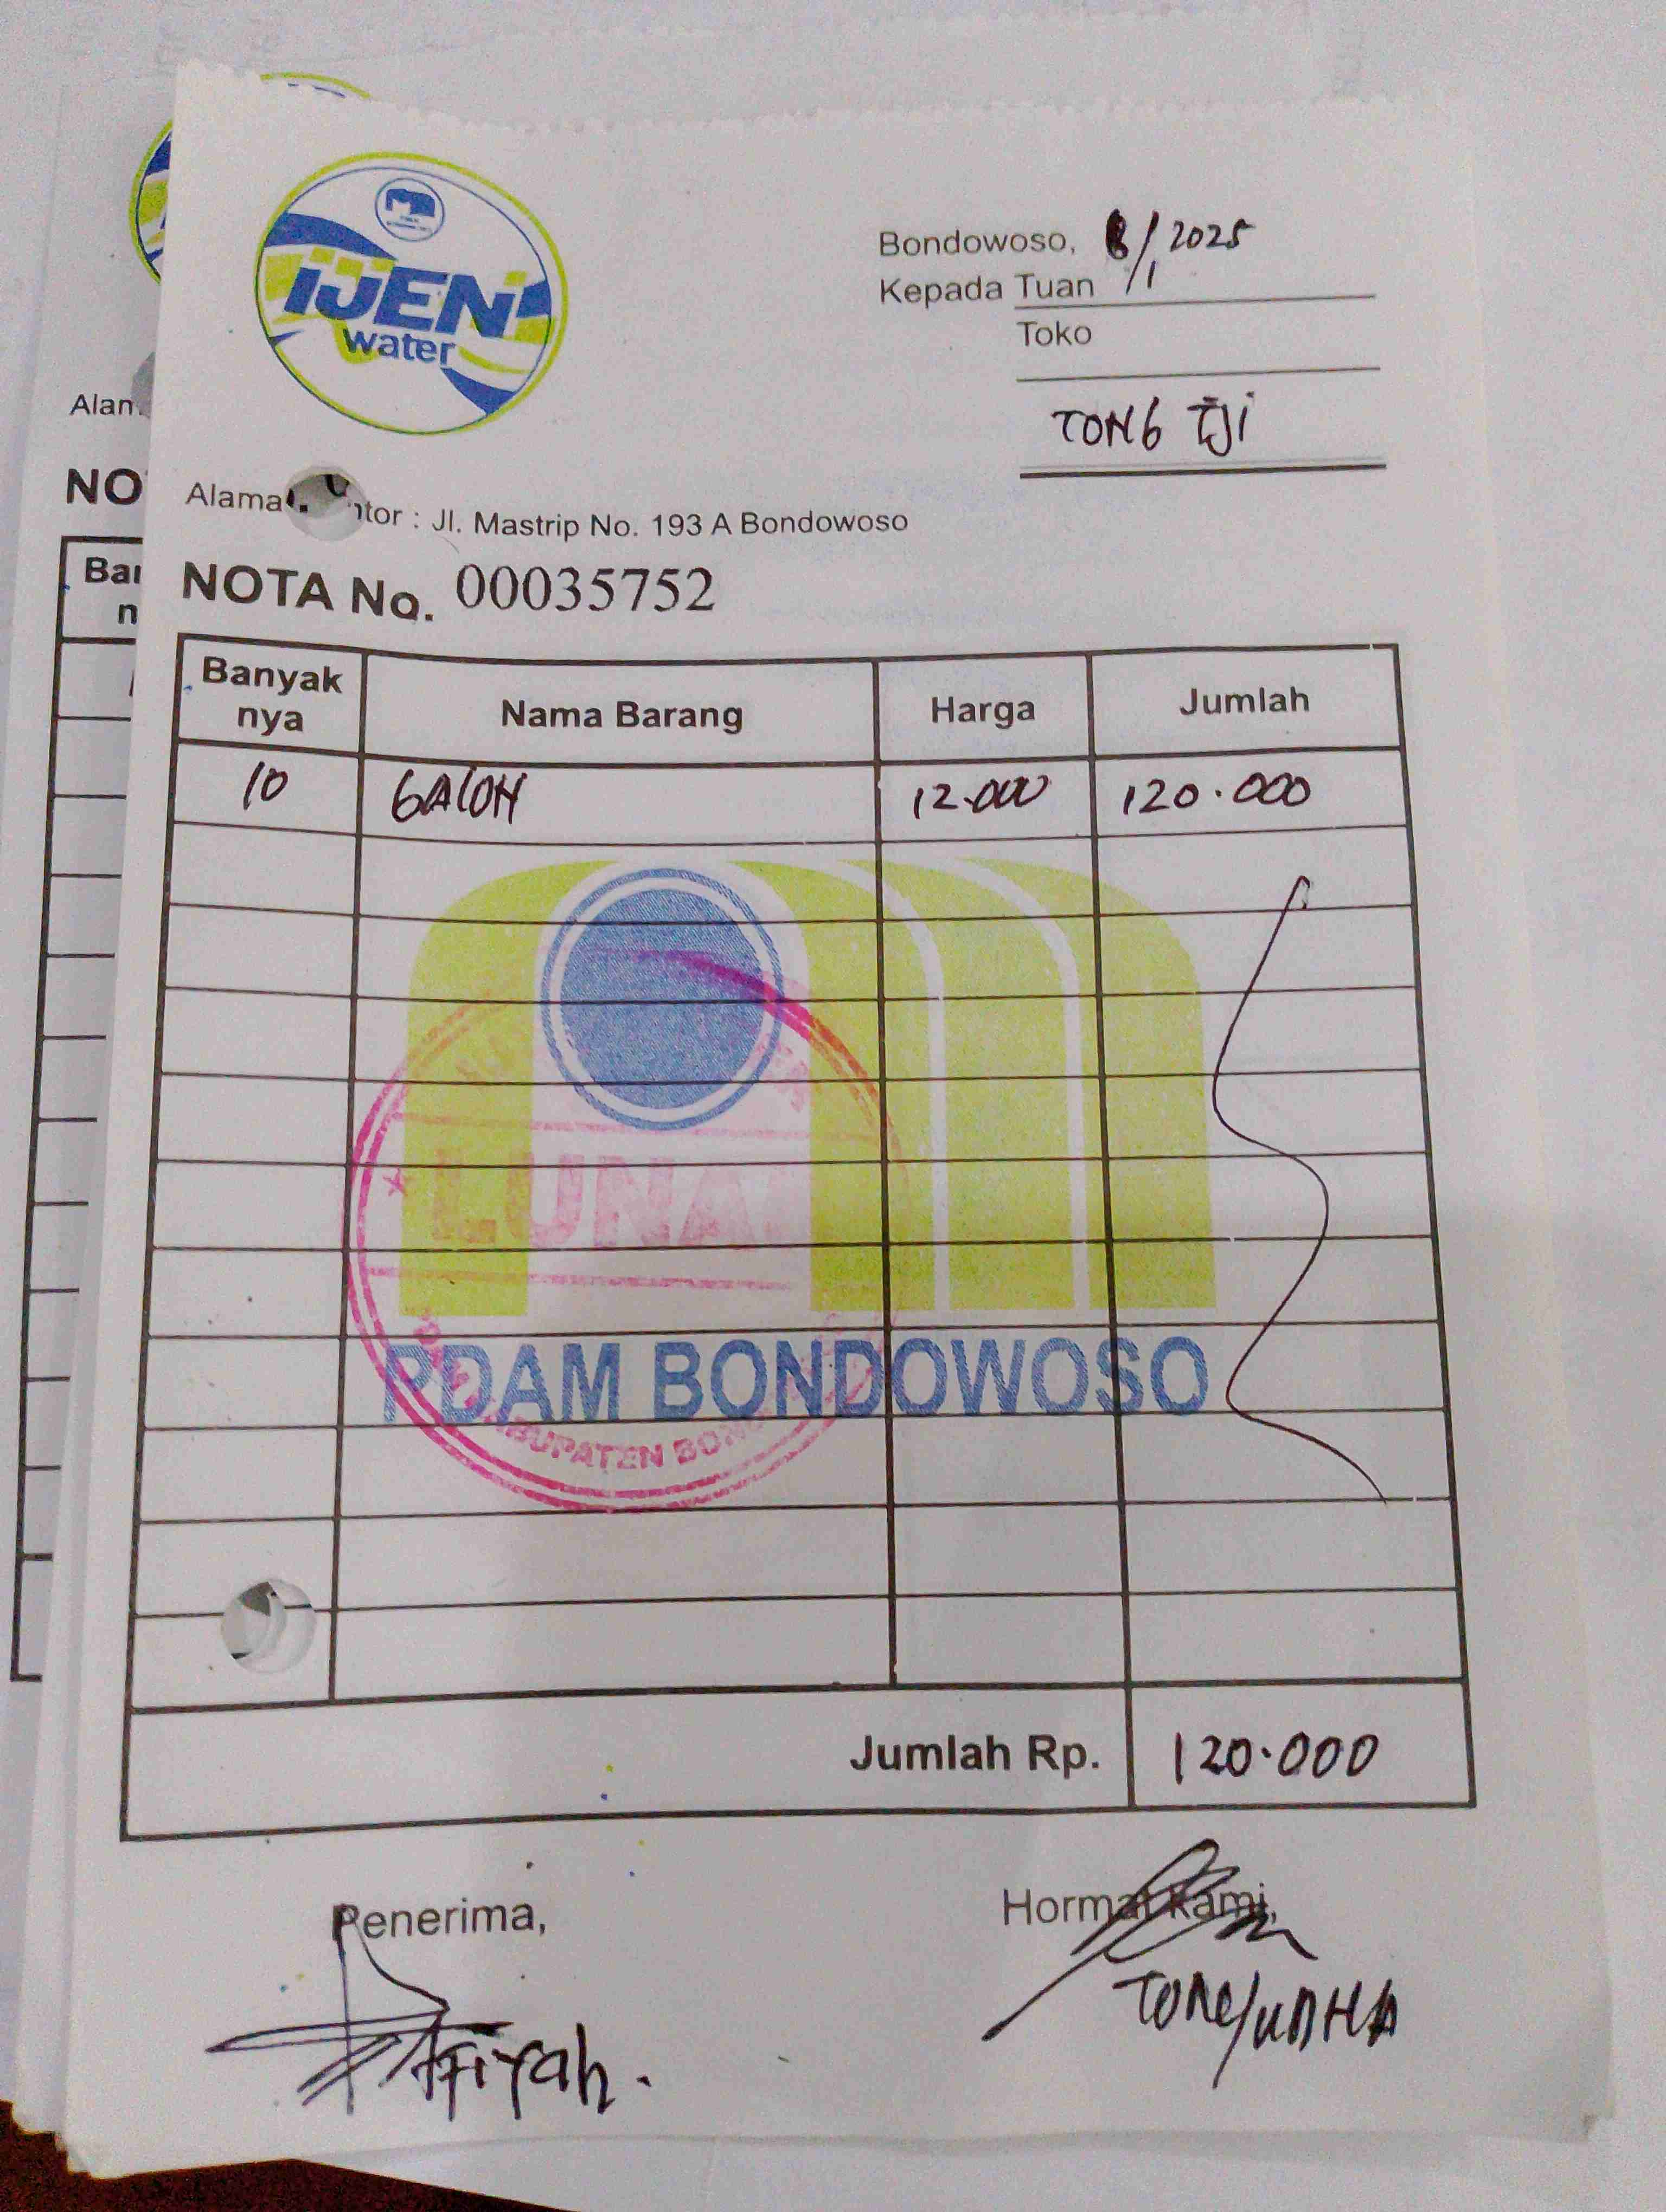 IJEN
water
Bondowoso, 8/1 2025
Kepada Tuan
Toko
TONG TJI
Alama ntor : Jl. Mastrip No. 193 A Bondowoso
NOTA No. 00035752
Banyak nya Nama Barang Harga Jumlah
10 GALON 12.000 120.000
LUNA
PDAM BONDOWOSO
BUPATEN BON
Jumlah Rp. 120.000
Penerima, Hormat Kami,
Afiyah.
Alam
NO
Ban
n